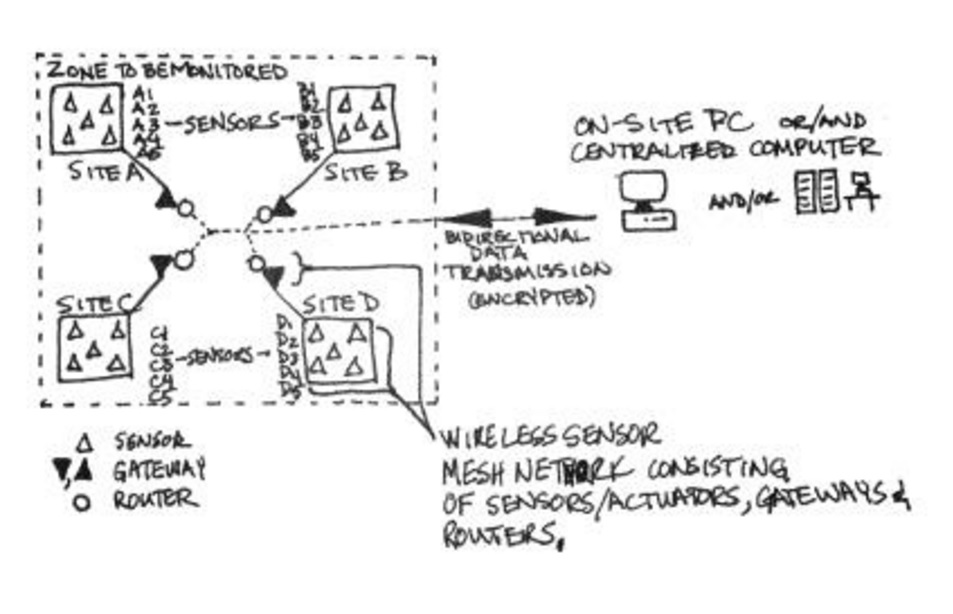 ZONE TO BE MONITORED
A1
A2
A3
A4
A5
SENSORS
B1
B2
B3
B4
B5
SITE A
SITE B
ON-SITE PC OR/AND
CENTRALIZED COMPUTER
AND/OR
BIDIRECTIONAL
DATA
TRANSMISSION
(ENCRYPTED)
SITE C
SITE D
C1
C2
C3
C4
C5
SENSORS
D1
D2
D3
D4
D5
SENSOR
GATEWAY
ROUTER
WIRELESS SENSOR
MESH NETWORK CONSISTING
OF SENSORS/ACTUATORS, GATEWAYS &
ROUTERS.